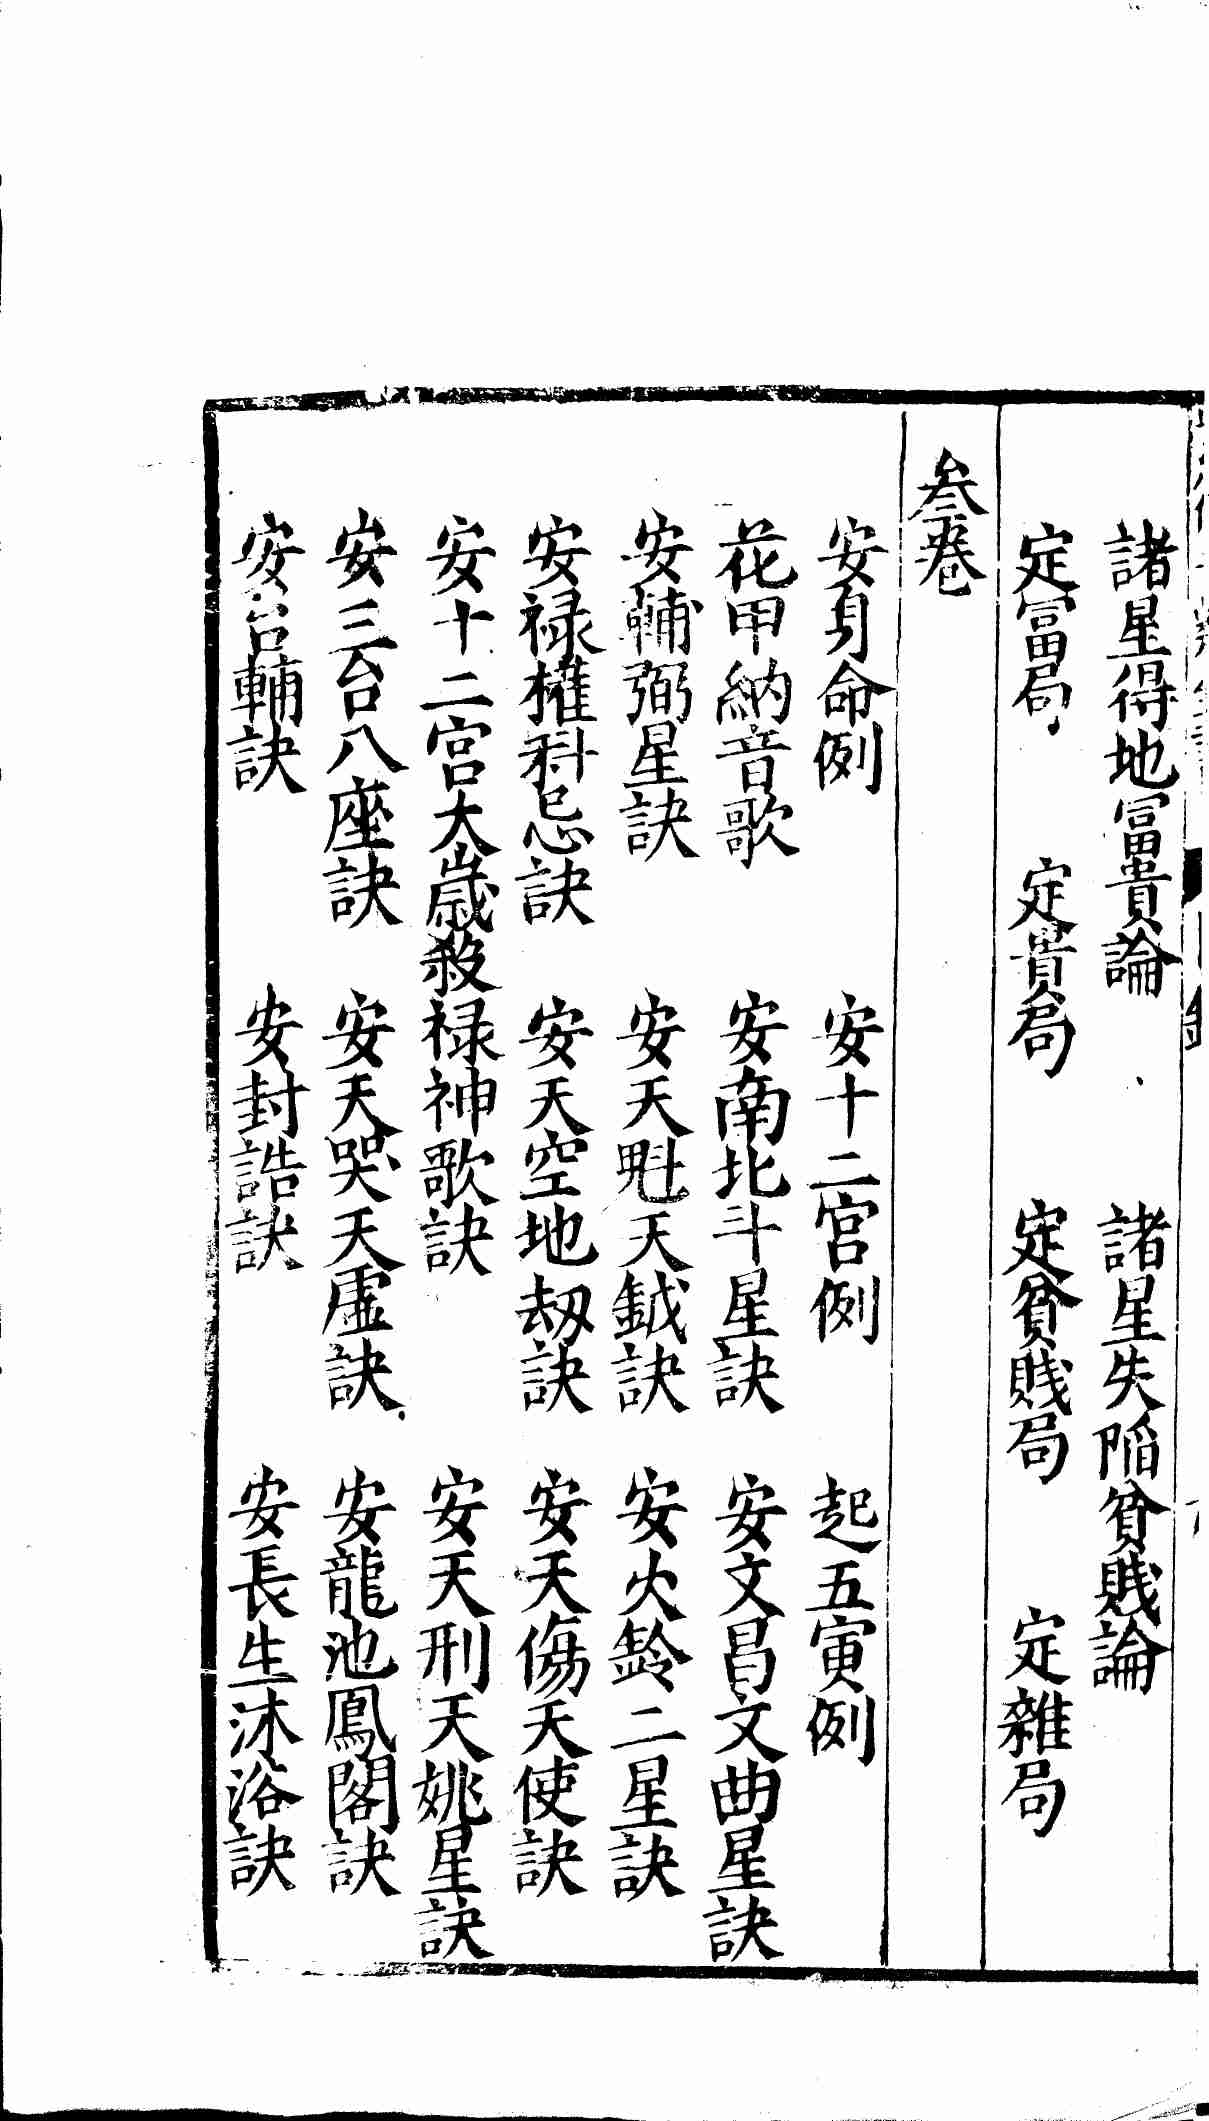 諸星得地冨貴論　諸星失陷貧賎論
定冨局　定貴局　定貧賎局　定雜局
叁卷
安身命例　安十二宮例　起五寅例
花甲納音歌　安南北斗星訣　安文昌文曲星訣
安輔弼星訣　安天魁天鉞訣　安火鈴二星訣
安禄權科忌訣　安天空地刼訣　安天傷天使訣
安十二宮太歲殺禄神歌訣　安天刑天姚星訣
安三台八座訣　安天哭天虛訣　安龍池鳳閣訣
安台輔訣　安封誥訣　安長生沐浴訣